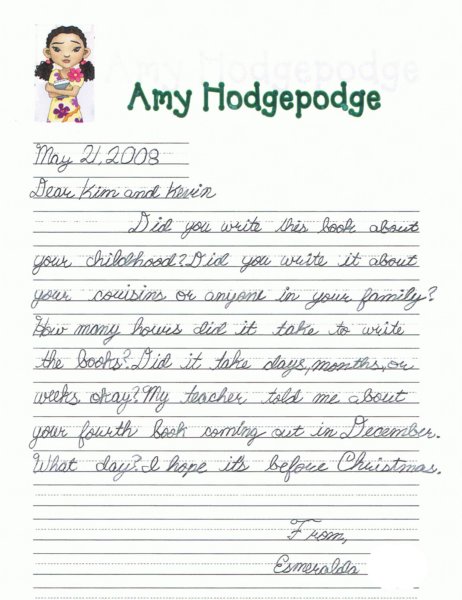 Amy Hodgepodge
May 21, 2008
Dear Kim and Kevin
Did you write this book about
your childhood? Did you write it about
your couisins or anyone in your family?
How many hours did it take to write
the books? Did it take days, months, or
weeks okay? My teacher told me about
your fourth book coming out in December.
What day? I hope it's before Christmas.
From,
Esmeralda